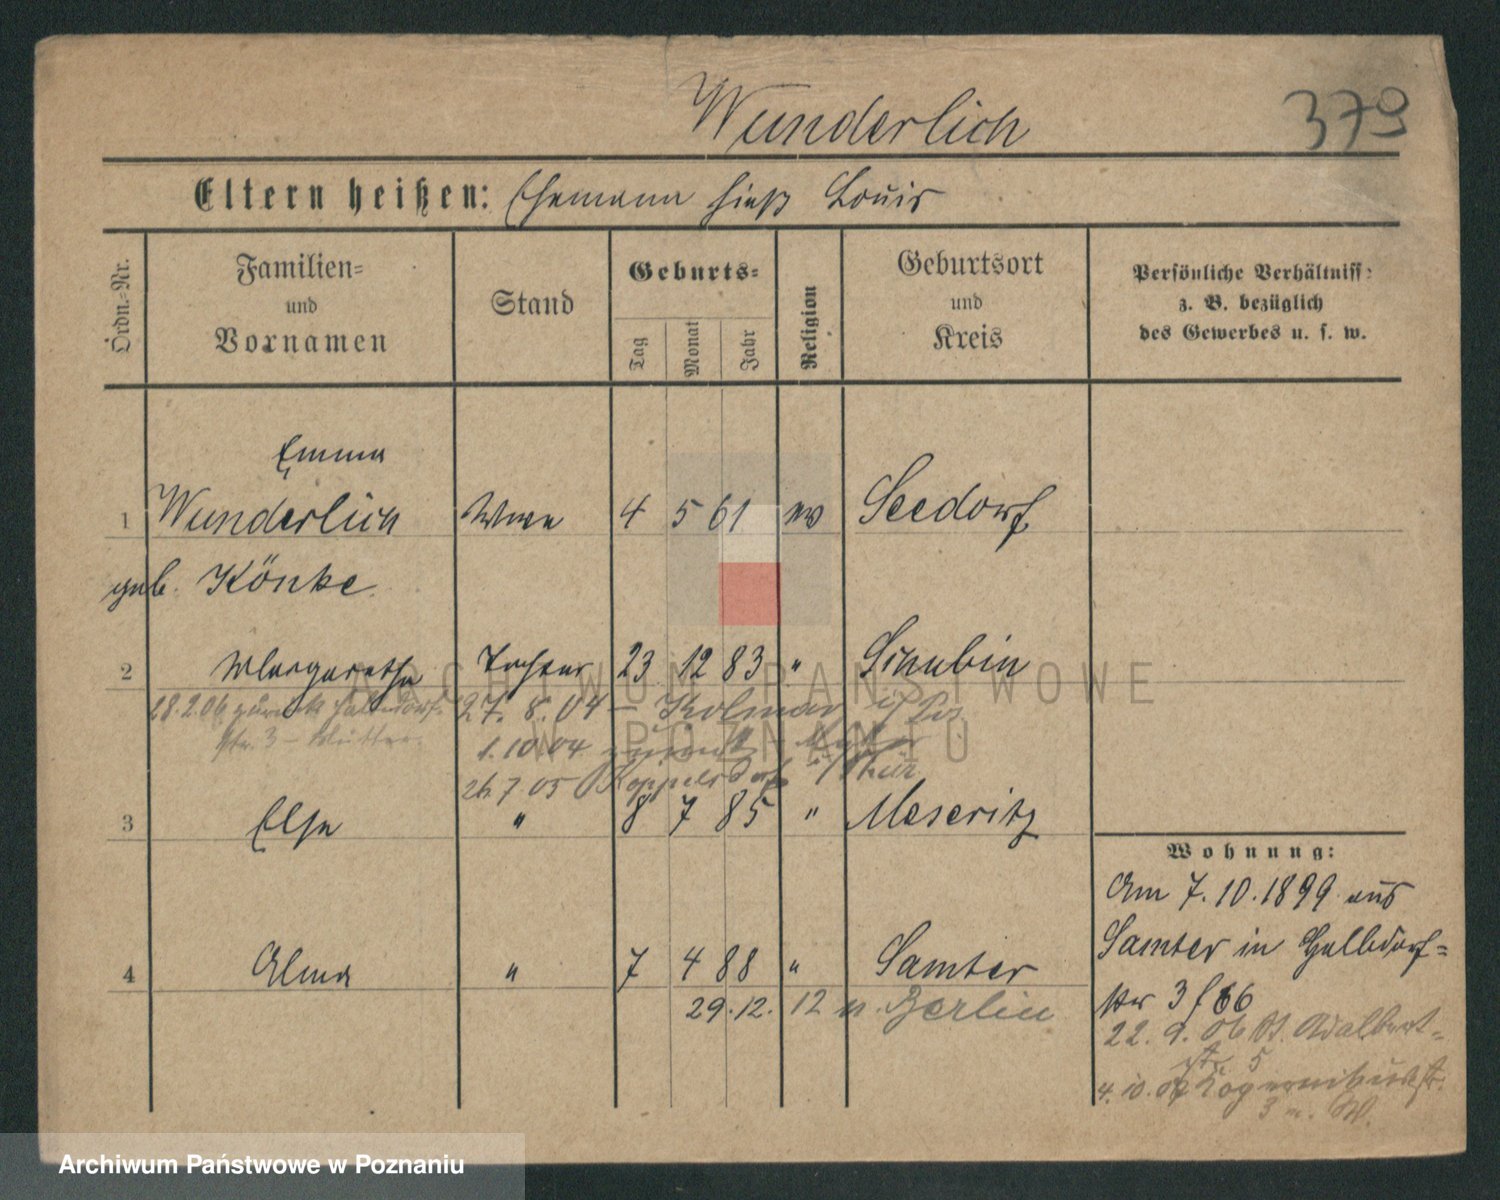 Wunderlich
379
Eltern heißen: Ehemann hieß Louis
Ordn.-Nr.
Familien-
und
Vornamen
Stand
Geburts-
Tag
Monat
Jahr
Religion
Geburtsort
und
Kreis
Persönliche Verhältniss:
z. B. bezüglich
des Gewerbes u. s. w.
Emma
1 Wunderlich Wwe 4 5 61 ev Seedorf
geb. Könke
2 Margarethe Tochter 23 12 83 " Schubin
18.2.06 zurück Halbdorf- 27. 8. 04 – Kolmar i/Po
str. 3 – Mutter. 1.10.04 zurück Mutter
26 7 05 Köppelsdorf i/Thür
3 Else " 8 7 85 " Meseritz
Wohnung:
Am 7.10.1899 aus
Samter in Halbdorf-
str 3 f 66
4 Alma " 7 4 88 " Samter
29.12. 12 n. Berlin
22. 9. 06 St. Adalbert-
str. 5
4.10.09
3
ARCHIWUM PAŃSTWOWE
W POZNANIU
Archiwum Państwowe w Poznaniu